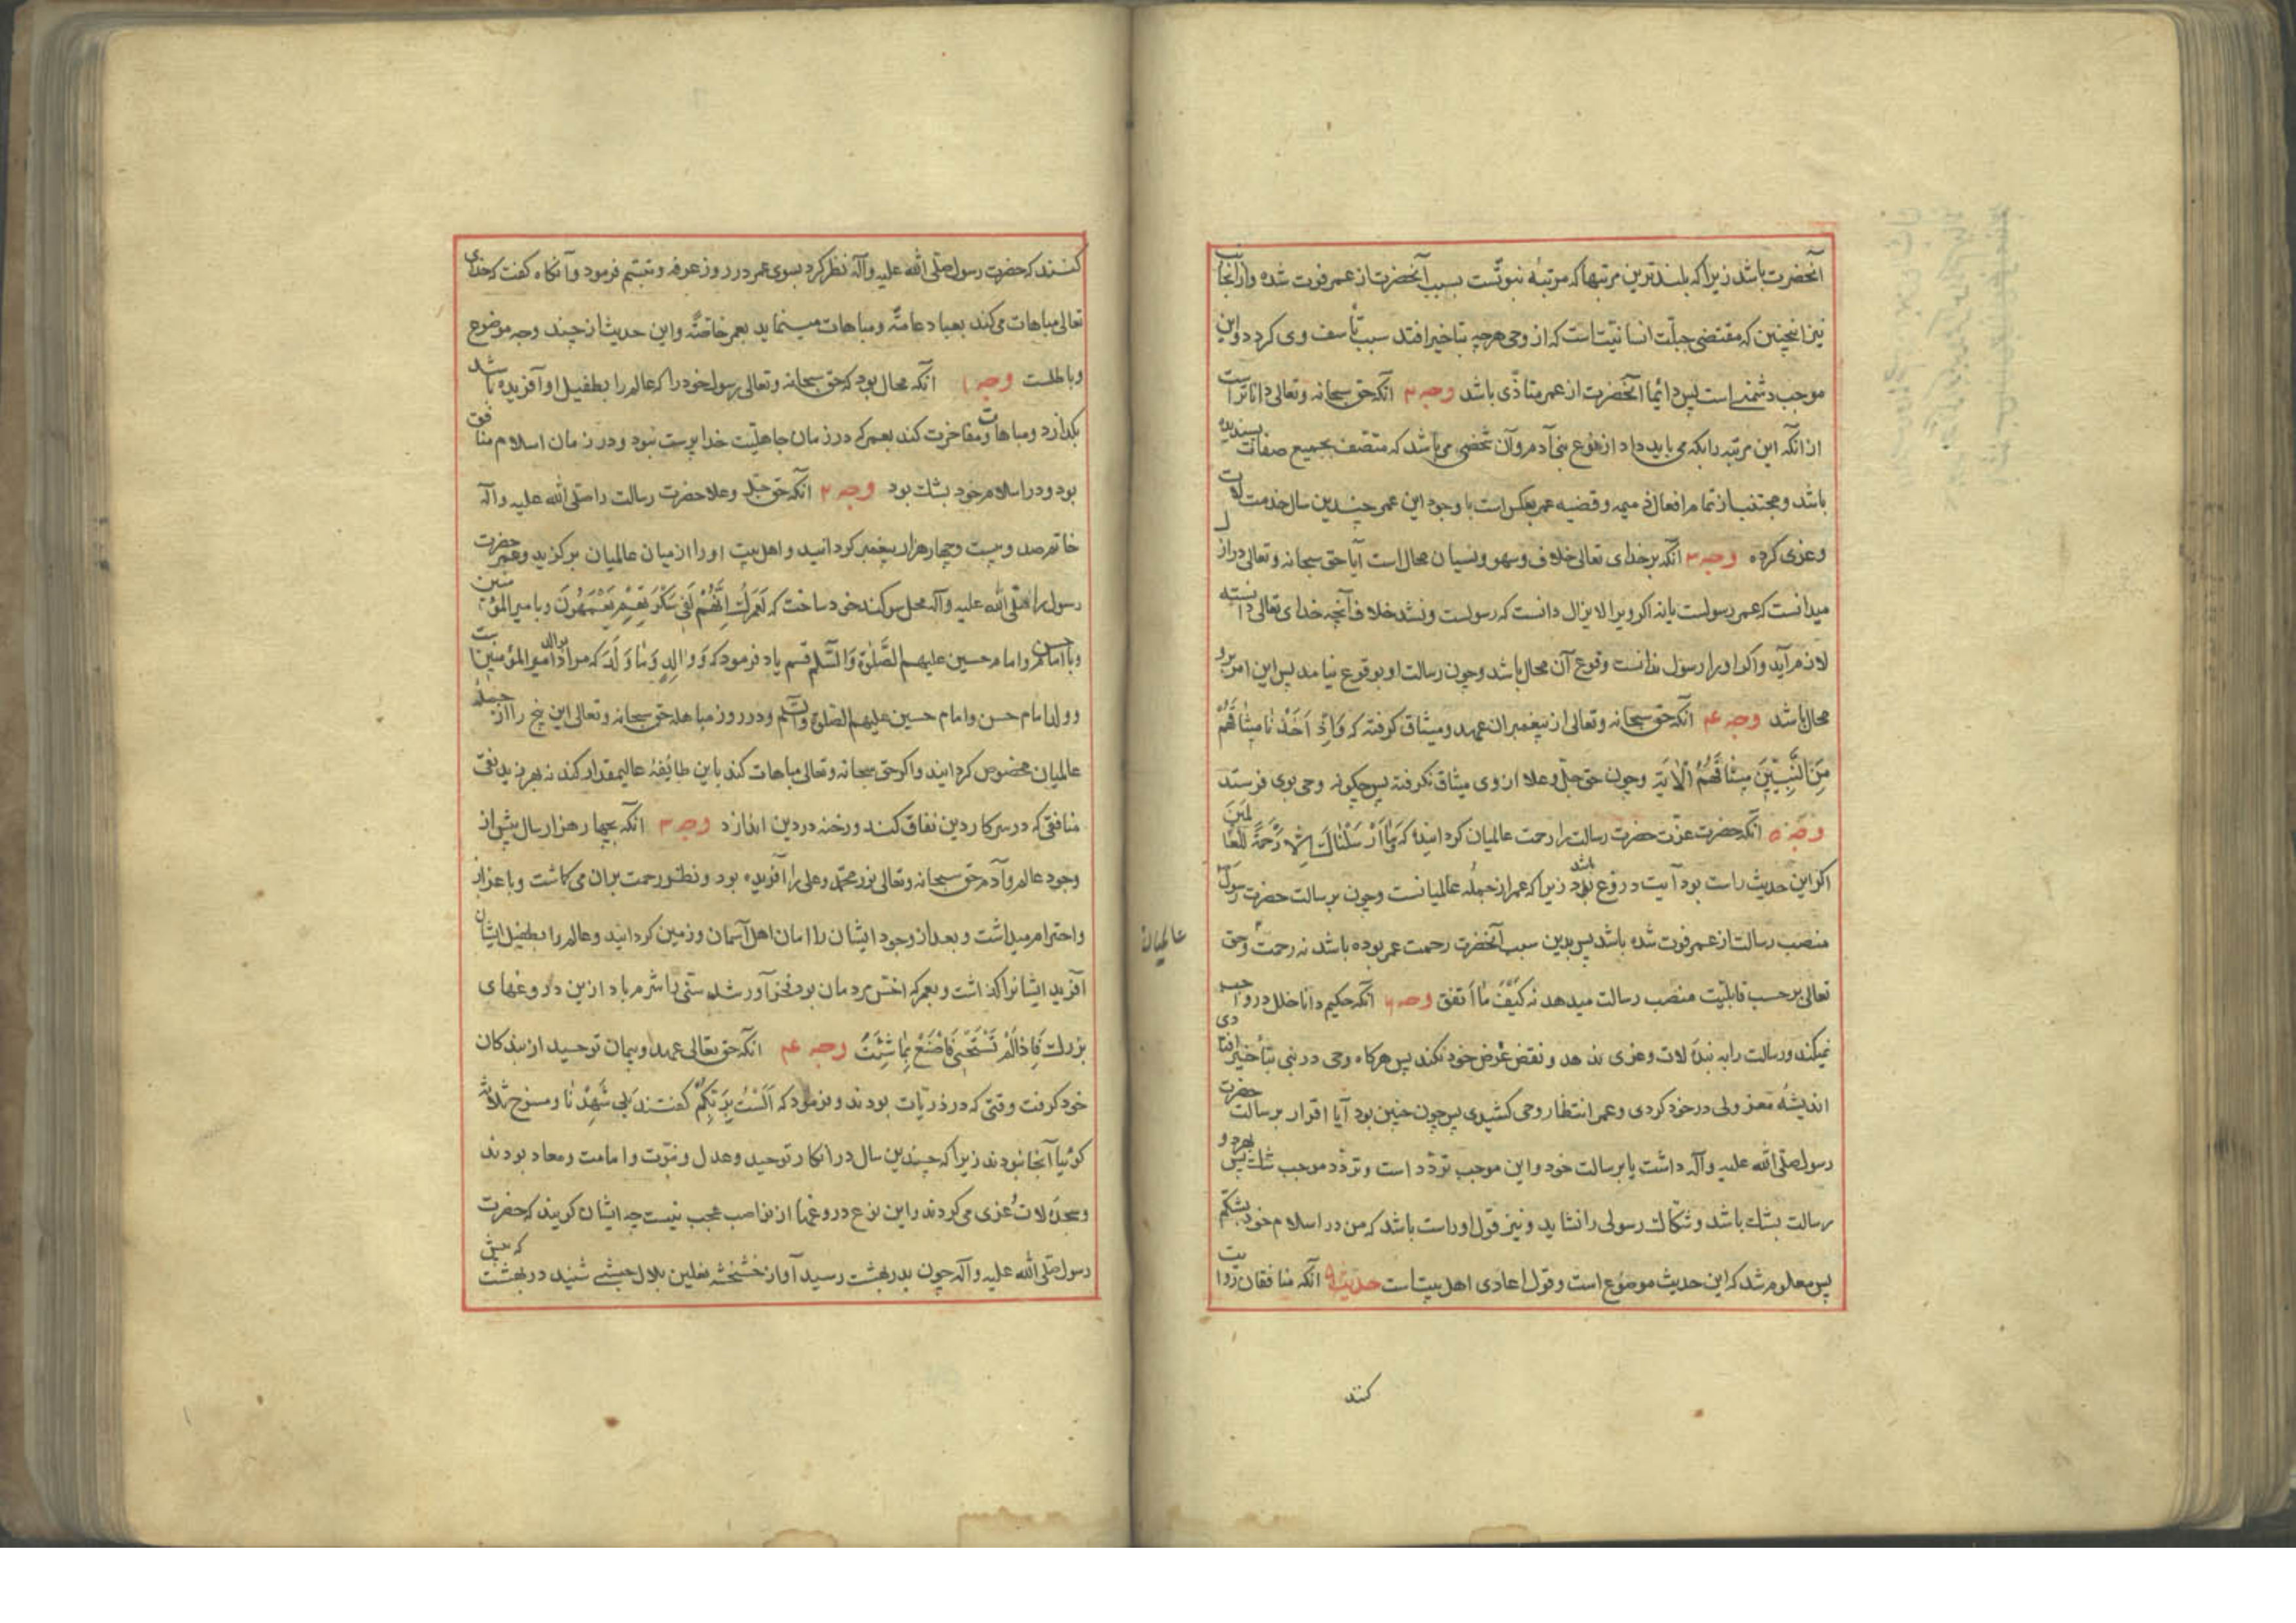 آنحضرت باشد زیرا که بلندترین مرتبها که مرتبهٔ نبوتست بسبب آنحضرت از عمر فوت شده و از آنجانب
نیز اینچنین که مقتضی جبلّت انسانیّت است که از وحی هرچه بتاخیر افتد سبب تأسف وی کردد و این
موجب دشمنی است پس دائما آنحضرت از عمر متاذّی باشد وجه ۲ آنکه حق سبحانه و تعالی داناتر است
از آنکه این مرتبه را بکه می باید داد از نوع بنی آدم و آن شخصی می باشد که متصّف بجمیع صفات پسندیده
باشد و مجتنب از تمام افعال ذمیمه و قضیه عمر بعکس است با وجود این عمر چندین سال خدمت لات
و عزی کرده وجه ۳ آنکه بر خدای تعالی خلاف و سهو و نسیان محال است آیا حق سبحانه و تعالی در ازل
میدانست که عمر رسولست یا نه اکر ویرا لایزال دانست که رسولست و نشد خلاف آنچه خدای تعالی دانسته
لازم آید و اکر او را رسول ندانست وقوع آن محال باشد و چون رسالت او بوقوع نیامد پس این امر برو
محال باشد وجه ۴ آنکه حق سبحانه و تعالی از پیغمبران عهد و میثاق کرفته که وَاِذْ اَخَذْنا میثاقَهُمْ
مِنَ النَّبِیّینَ مِیثاقَهُمُ الْاٰیَة و چون حق جلّ و علا از وی میثاق نکرفته پس چکونه وحی بوی فرستد
وجه ۵ آنکه حضرت عزّت حضرت رسالت را رحمت عالمیان کردانیده که وَمٰا اَرْسَلْنٰاكَ اِلّا رَحْمَةً لِلْعٰالَمِینَ
اکر این حدیث راست بود آیت دروغ باشد زیرا که عمر از جملهٔ عالمیانست و چون برسالت حضرت رسول
منصب رسالت از عمر فوت شده باشد پس بدین سبب آنحضرت رحمت عمر نبوده باشد نه رحمت وحق
عالمیان
تعالی بر حسب قابلیّت منصب رسالت میدهد نه کَیْفَ مٰا اَتفق وجه ۶ آنکه حکیم دانا خلل در واجب
نمیکند و رسالت را به بندهٔ لات و عزی ندهد و نقض غرض خود نکند پس هرکاه وحی در نبی بتأخیر افتادی
اندیشهٔ معزولی در خود کردی و عمر انتظار وحی کشیدی پس چون چنین بود آیا اقرار برسالت حضرت
رسول صلّی اللّه علیه وآله داشت یا برسالت خود و این موجب تردّد است و تردّد موجب شك پس بهر دو
رسالت بشك باشد و شکّاك رسولی را نشاید و نیز قول او راست باشد که من در اسلام خود بشکّم
پس معلوم شد که این حدیث موضوع است و قول اعادی اهل بیت است حدیث ۹ آنکه منافقان روایت
کنند
کنند که حضرت رسول صلّی اللّه علیه وآله نظر کرد بسوی عمر در روز عرفه و تبسّم فرمود و آنکاه کفت که خدای
تعالی مباهات می کند بعباد عامّةً و مباهات مینماید بعمر خاصّةً و این حدیث از چند وجه موضوع
و باطلست وجه ۱ آنکه محال بود که حق سبحانه و تعالی رسول خود را که عالم را بطفیل او آفریده باشد
بکذارد و مباهات و مفاخرت کند بعمر که در زمان جاهلیّت خداپرست نبود و در زمان اسلام منافق
بود و در اسلام خود بشك بود وجه ۲ آنکه حق جلّ وعلا حضرت رسالت را صلّی اللّه علیه وآله
خاتم صد و بیست و چهار هزار پیغمبر کردانید و اهل بیت او را از میان عالمیان برکزید و عمر حضرت
رسول را صلّی اللّه علیه وآله محل سوکند خود ساخت که لَعَمْرُكَ اِنَّهُمْ لَفی سَکْرَتِهِمْ یَعْمَهُونَ و بامیر المؤمنین
و بامام حسن و امام حسین علیهم الصَّلٰوة وَالسَّلٰم قسم یاد فرمود که وَوٰالِدٍ وَمٰا وَلَدَ که مراد از والد امیر المؤمنین است
و ولد امام حسن و امام حسین علیهم الصلوة والسّلم و در روز مباهله حق سبحانه و تعالی این پنج را از جمله
عالمیان مخصوص کردانید و اکر حق سبحانه و تعالی مباهات کند باین طائفهٔ عالیمقدار کند نه بهر زندیقی
منافقی که در سر کار دین نفاق کند و رخنه در دین اندازد وجه ۳ آنکه بچهار هزار سال پیش از
وجود عالم و آدم حق سبحانه و تعالی نور محمّد و علی را آفریده بود و نظر رحمت بران می کماشت و باعزاز
و احترام میداشت و بعد از وجود ایشان را امان اهل آسمان و زمین کردانید و عالم را بطفیل ایشان
آفرید ایشانرا کذاشت و بعمر که اخسّ مردمان بود فخر آور شد سنّی را شرم باد ازین دروغهای
بزرك فَاِذٰا لَمْ تَسْتَحْیِ فَاصْنَعْ مٰا شِئْتَ وجه ۴ آنکه حق تعالی عهد و پیمان توحید از بندکان
خود کرفت وقتی که در ذریّات بودند و فرمود که اَلَسْتُ بِرَبِّکُمْ کفتند بَلٰی شَهِدْنٰا و مشایخ ثلاثه
کوئیا آنجا نبودند زیرا که چندین سال در انکار توحید و عدل و نبوّت و امامت و معاد بودند
و سجدهٔ لات و عزی می کردند و این نوع دروغها از نواصب عجب نیست چه ایشان کویند که حضرت
رسول صلّی اللّه علیه وآله چون بدر بهشت رسید آواز خشخشه نعلین بلال حبشی شنید در بهشت